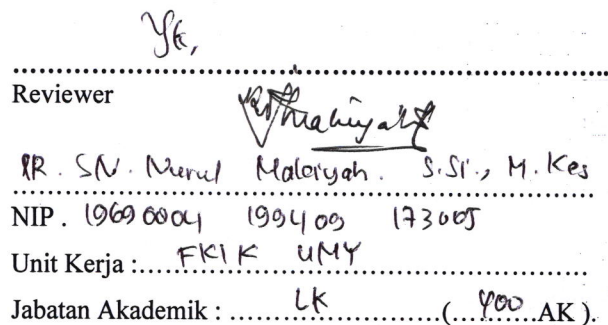 Yk,
Reviewer
DR. SN. Nurul Makiyah. S.Si., M. Kes
NIP. 19690004 199409 173005
Unit Kerja :.... FKIK UMY
Jabatan Akademik : ..... LK .....(.. 400 ..AK ).